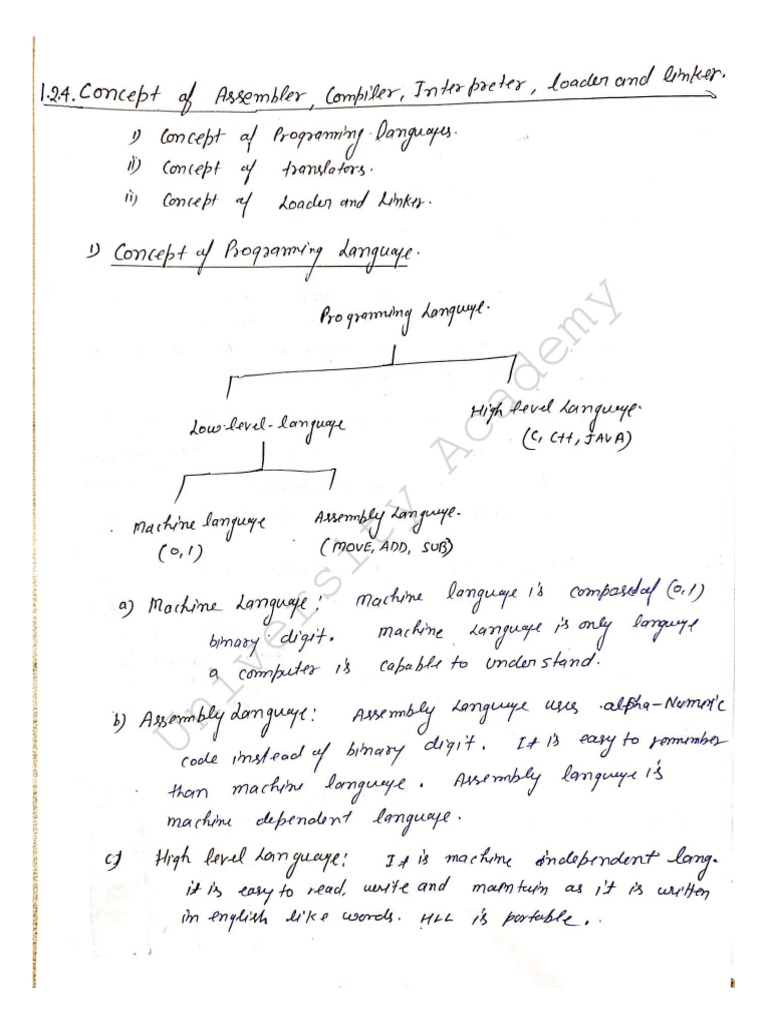 1.24. Concept of Assembler, Compiler, Interpreter, loader and linker.
i) Concept of Programing Languages.
ii) Concept of translators.
iii) Concept of Loader and Linker.
1) Concept of Programing Language.
Programing Language.
Low-level-language
High level Language.
(C, C++, JAVA)
Machine language
(0,1)
Assembly Language.
(MOVE, ADD, SUB)
a) Machine Language: Machine language is composed of (0,1)
binary digit. Machine Language is only language
a computer is capable to understand.
b) Assembly Language: Assembly Language uses alpha-Numeric
code instead of binary digit. It is easy to remember
than machine language. Assembly language is
machine dependent language.
c) High level Language: It is machine independent lang.
it is easy to read, write and maintain as it is written
in english like words. HLL is portable.
University Academy